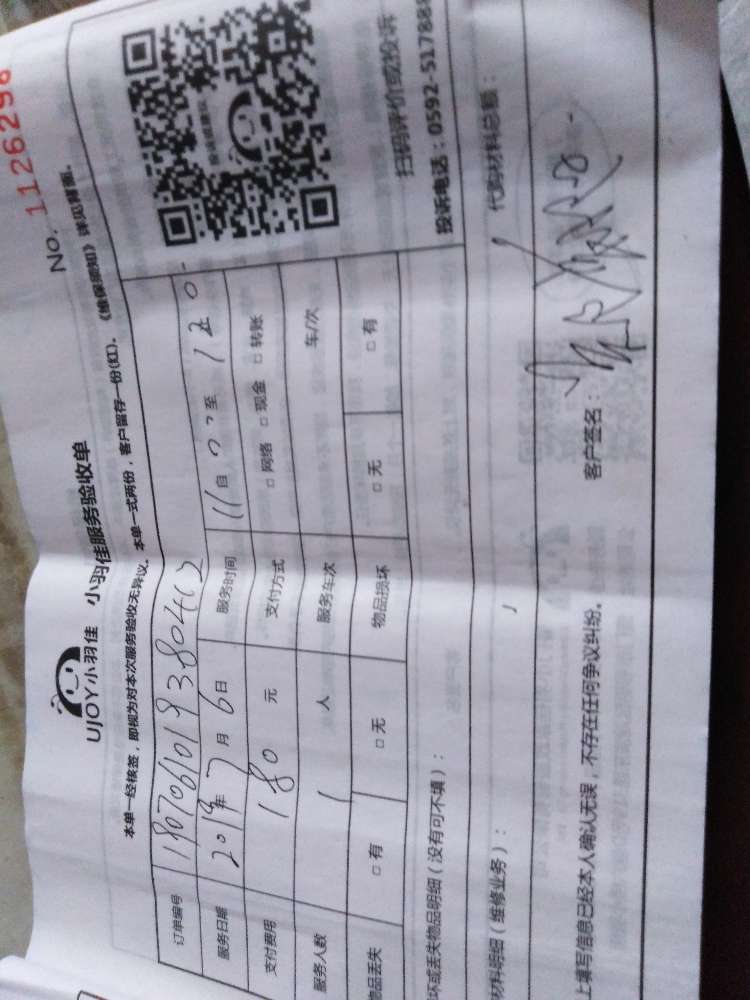 No. 1126298
UJOY小羽佳 小羽佳服务验收单
本单一经核签，即视为对本次服务验收无异议。本单一式两份，客户留存一份(红)。《维保须知》详见背面。
订单编号
服务日期 2019年7月6日 服务时间 自 至
支付费用 180 元 支付方式 □网络 □现金 □转账
服务人数 1 人 服务车次 车/次
物品丢失 □有 □无 物品损坏 □无 □有
投诉或建议
扫码评价或投诉
投诉电话：0592-517888
坏或丢失物品明细（没有可不填）：
材料明细（维修业务）： 代购材料总额：
上填写信息已经本人确认无误，不存在任何争议纠纷。 客户签名：